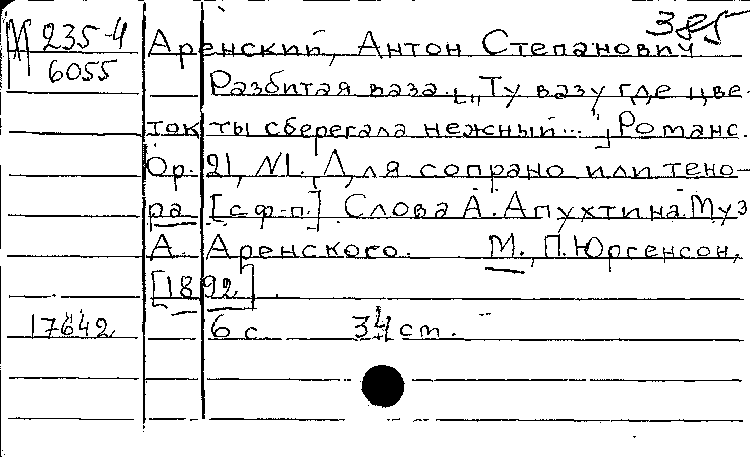 385
М 235-4
6055
Аренский, Антон Степанович
Разбитая ваза. [„Ту вазу где цве-
ток ты сберегала нежный..."] Романс.
Ор. 21, N1. [Для сопрано или тено-
ра [с ф-п.] Слова А. Апухтина. Муз
А. Аренского. М., П. Юргенсон,
[1892].
17642 6 с. 34 cm.